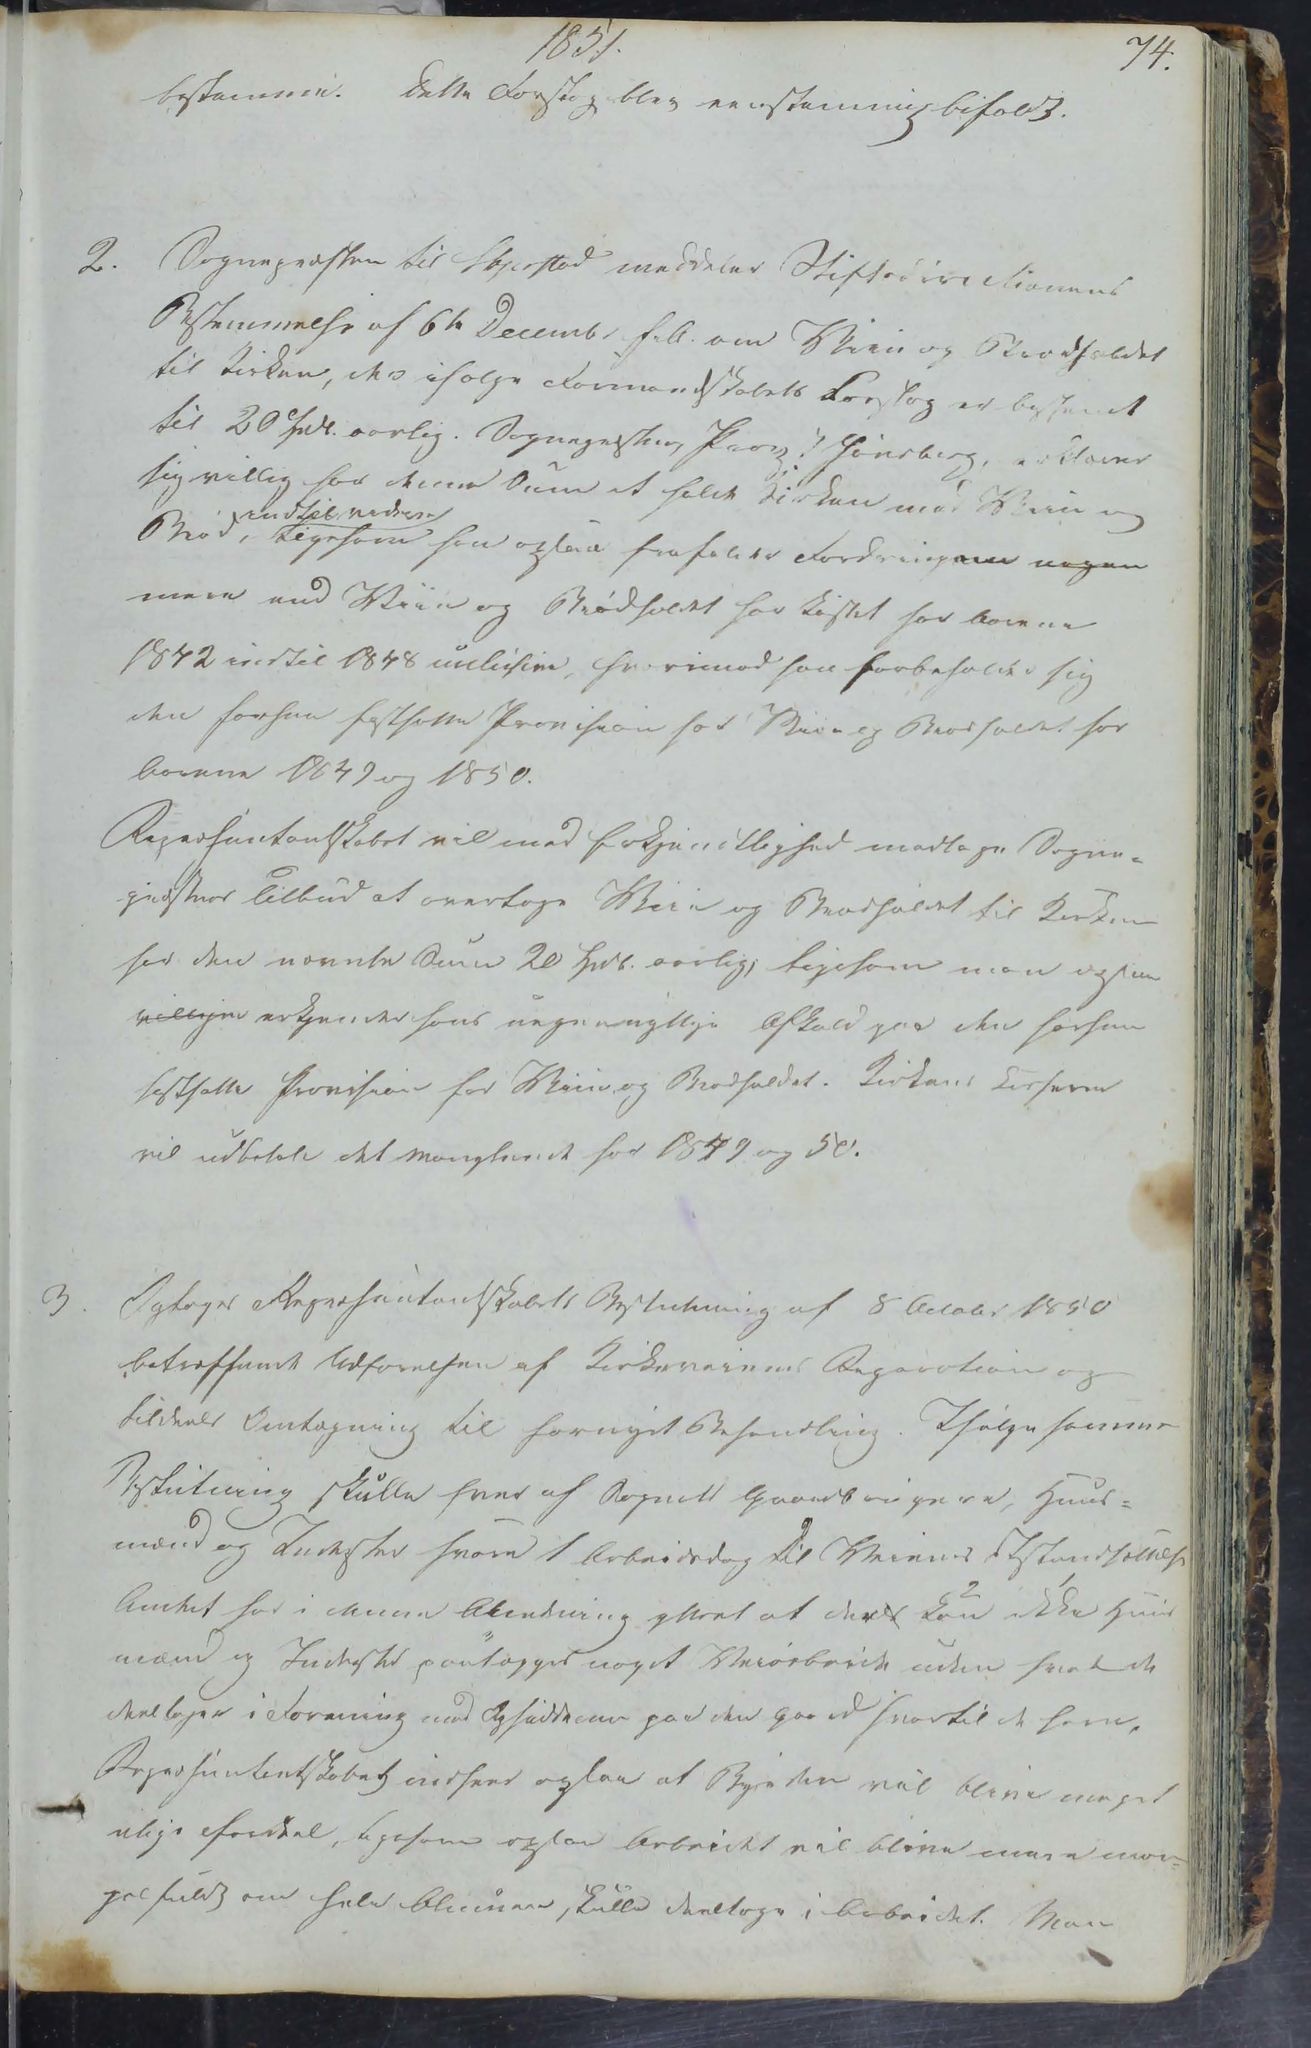 1851.
74.
bestemme. Dette Forslag blev eenstemmig bifaldt.
2. Sognepræsten til Skjerstad meddeler Stiftsdirectionens
Bestemmelse af 6te Decemb. f.A. om Viin og Brødholdet
til Kirken, der ifølge Formandskabets Forslag er bestemt
til 20 Spdl. aarlig. Sognepresten, erklærer
sig villig for denne Sum at holde Kirken med Viin og
Brød, indtil videre, ligesom han ogsaa frafalder Fordringen nogen
mere end Viin og Brødholdet har kostet for Aarene
1842 indtil 1848 inclusive, hvorimod han forbeholder sig
den forhen fastsatte Provision for Viin og Brødholdet for
Aarene 1849 og 1850.
Repræsentantskabet vil med Erkjendtlighed modtage Sogne-
præstens Tilbud at overtage Viin og Brødholdet til Kirken
for den nævnte Sum 20 Spdl. aarlig, ligesom man ogsaa
villigen erkjender hans uegennyttige Afkald paa den forhen
fastsatte Provision for Viin og Brødholdet. Kirkens Kasserer
vil udbetale det manglende for 1849 og 50.
3. Optages Repræsentantskabets Beslutning af 8 October 1850
betræffende Udførelsen af Kirkeveiens Reparation og
tildeels Omlægning til fornyet Behandling. Ifølge samme
Beslutning skulle hver af Sognets Gaardbrugere, Huus-
mænd og Inderster svare 1 Arbeidsdag til Veiens Istandsættelse
Amtet har i denne Anledning yttret at der kan ikke Huus
mænd og Inderster paalægges noget Veiarbeide uden hvad de
deeltager i Forening med Opsidderen paa den Gaard hvortil de høre.
Repræsentantskabet indseer ogsaa at Byrden vil blive meget
ulige fordeel, ligesom ogsaa Arbeidet vil blive mere man-
gelfuldt om hele Almuen skulle deeltage i Arbeidet. Man